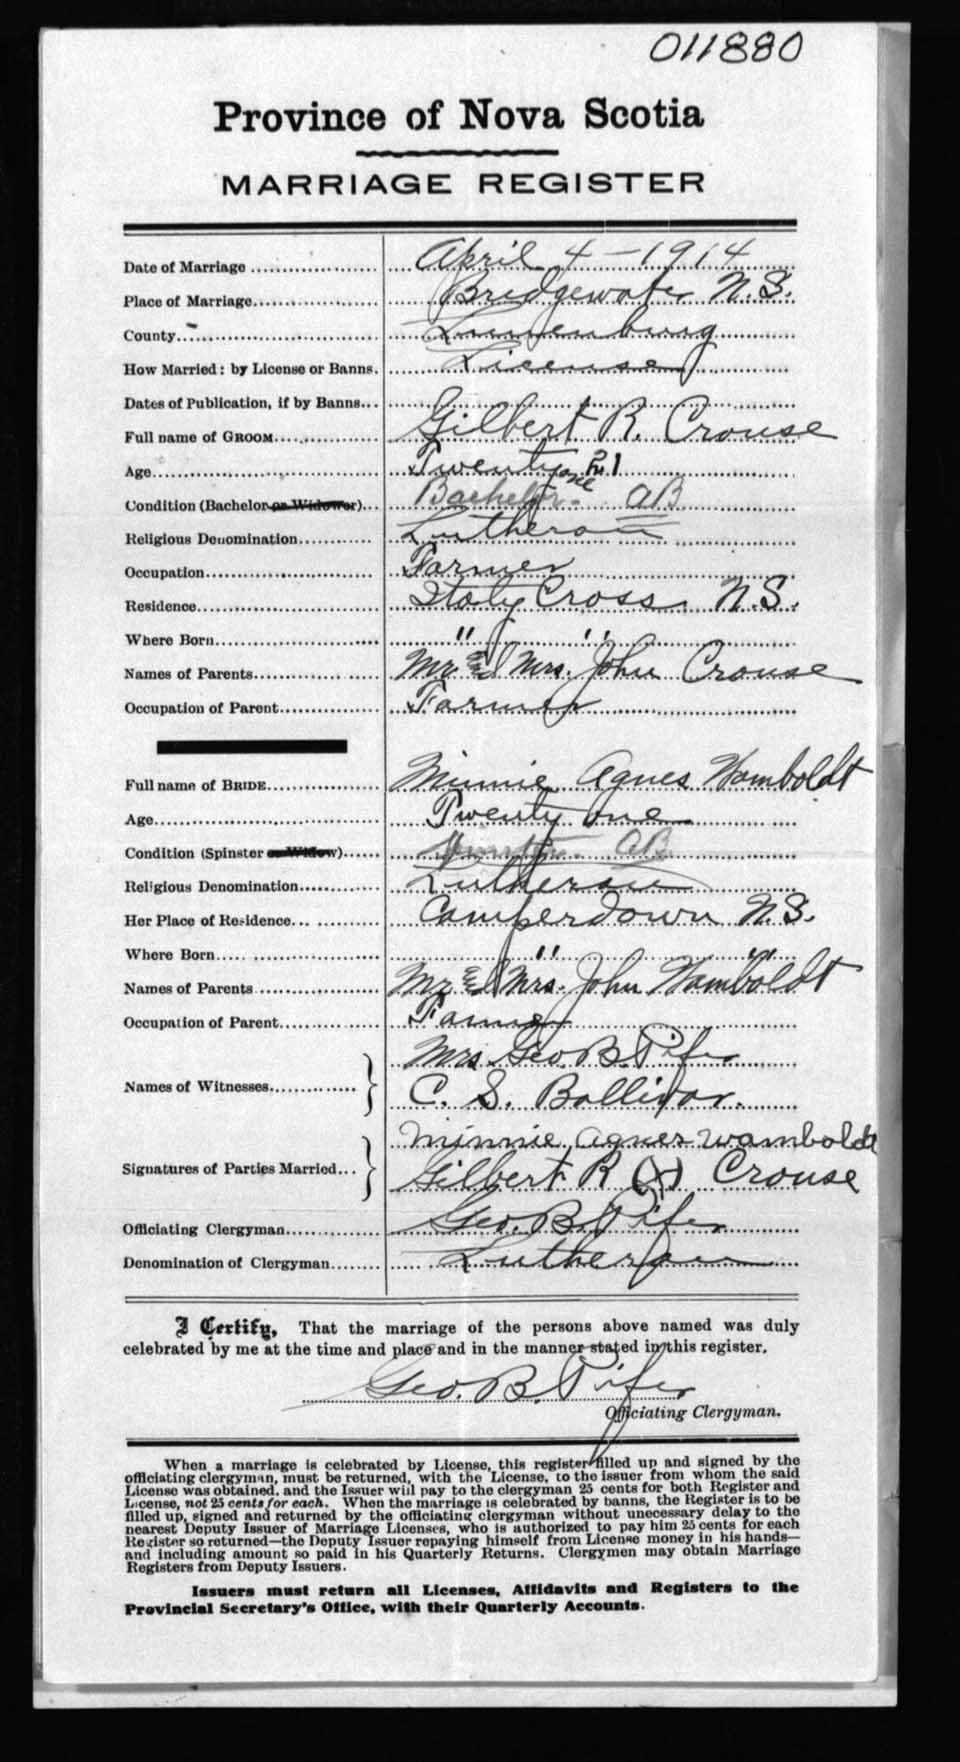 011880
Province of Nova Scotia
MARRIAGE REGISTER
Date of Marriage .................... April 4 - 1914
Place of Marriage.................... Bridgewater N.S.
County.................... Lunenburg
How Married: by License or Banns. License
Dates of Publication, if by Banns...
Full name of GROOM.................... Gilbert R. Crouse
Age.................... Twenty one 21
Condition (Bachelor or Widower)... Bachelor. AB
Religious Denomination............ Lutheran
Occupation.................... Farmer
Residence.................... Italy Cross N.S.
Where Born.................... " "
Names of Parents.................... Mr. & Mrs. John Crouse
Occupation of Parent................ Farmer
Full name of BRIDE.................. Minnie Agnes Wamboldt
Age.................... Twenty one
Condition (Spinster or Widow)...... Spinster. AB
Religious Denomination............ Lutheran
Her Place of Residence... ........... Camperdown N.S.
Where Born.................... " "
Names of Parents.................... Mr & Mrs. John Wamboldt
Occupation of Parent................ Farmer
Names of Witnesses.............. Mrs. Geo. B. Pifer
C. S. Bollivar.
Signatures of Parties Married... Minnie Agnes Wamboldt
Gilbert R (X) Crouse
Officiating Clergyman.............. Geo. B. Pifer
Denomination of Clergyman........ Lutheran
I Certify, That the marriage of the persons above named was duly
celebrated by me at the time and place and in the manner stated in this register.
Geo. B. Pifer
Officiating Clergyman.
When a marriage is celebrated by License, this register filled up and signed by the
officiating clergyman, must be returned, with the License, to the issuer from whom the said
License was obtained, and the Issuer will pay to the clergyman 25 cents for both Register and
License, not 25 cents for each. When the marriage is celebrated by banns, the Register is to be
filled up, signed and returned by the officiating clergyman without unecessary delay to the
nearest Deputy Issuer of Marriage Licenses, who is authorized to pay him 25 cents for each
Register so returned—the Deputy Issuer repaying himself from License money in his hands—
and including amount so paid in his Quarterly Returns. Clergymen may obtain Marriage
Registers from Deputy Issuers.
Issuers must return all Licenses, Affidavits and Registers to the
Provincial Secretary's Office, with their Quarterly Accounts.